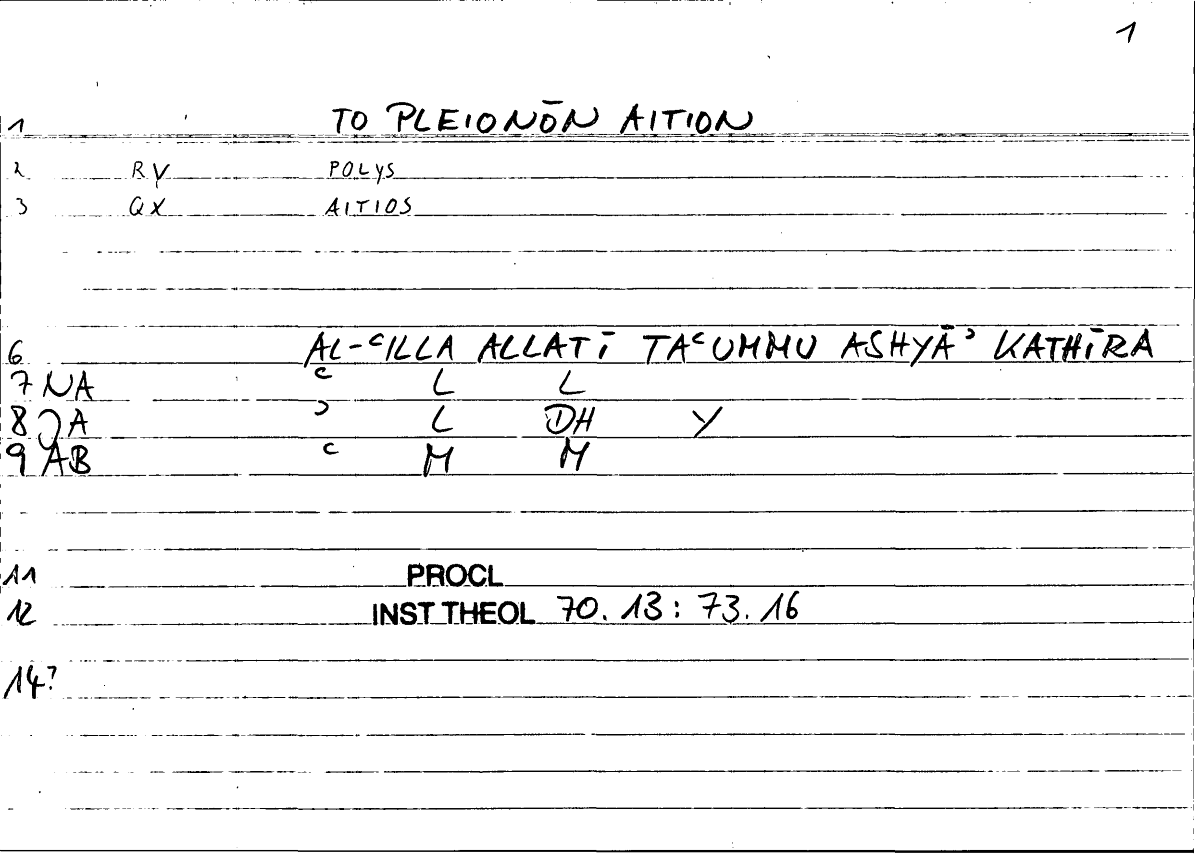 1
1 TO PLEIONŌN AITION
2 RV POLYS
3 QX AITIOS
6 AL-ʿILLA ALLATĪ TAʿUMMU ASHYĀʾ KATHĪRA
7 NA ʿ L L
8 JA ʾ L DH Y
9 AB ʿ M M
11 PROCL
12 INST THEOL 70.13: 73.16
14?